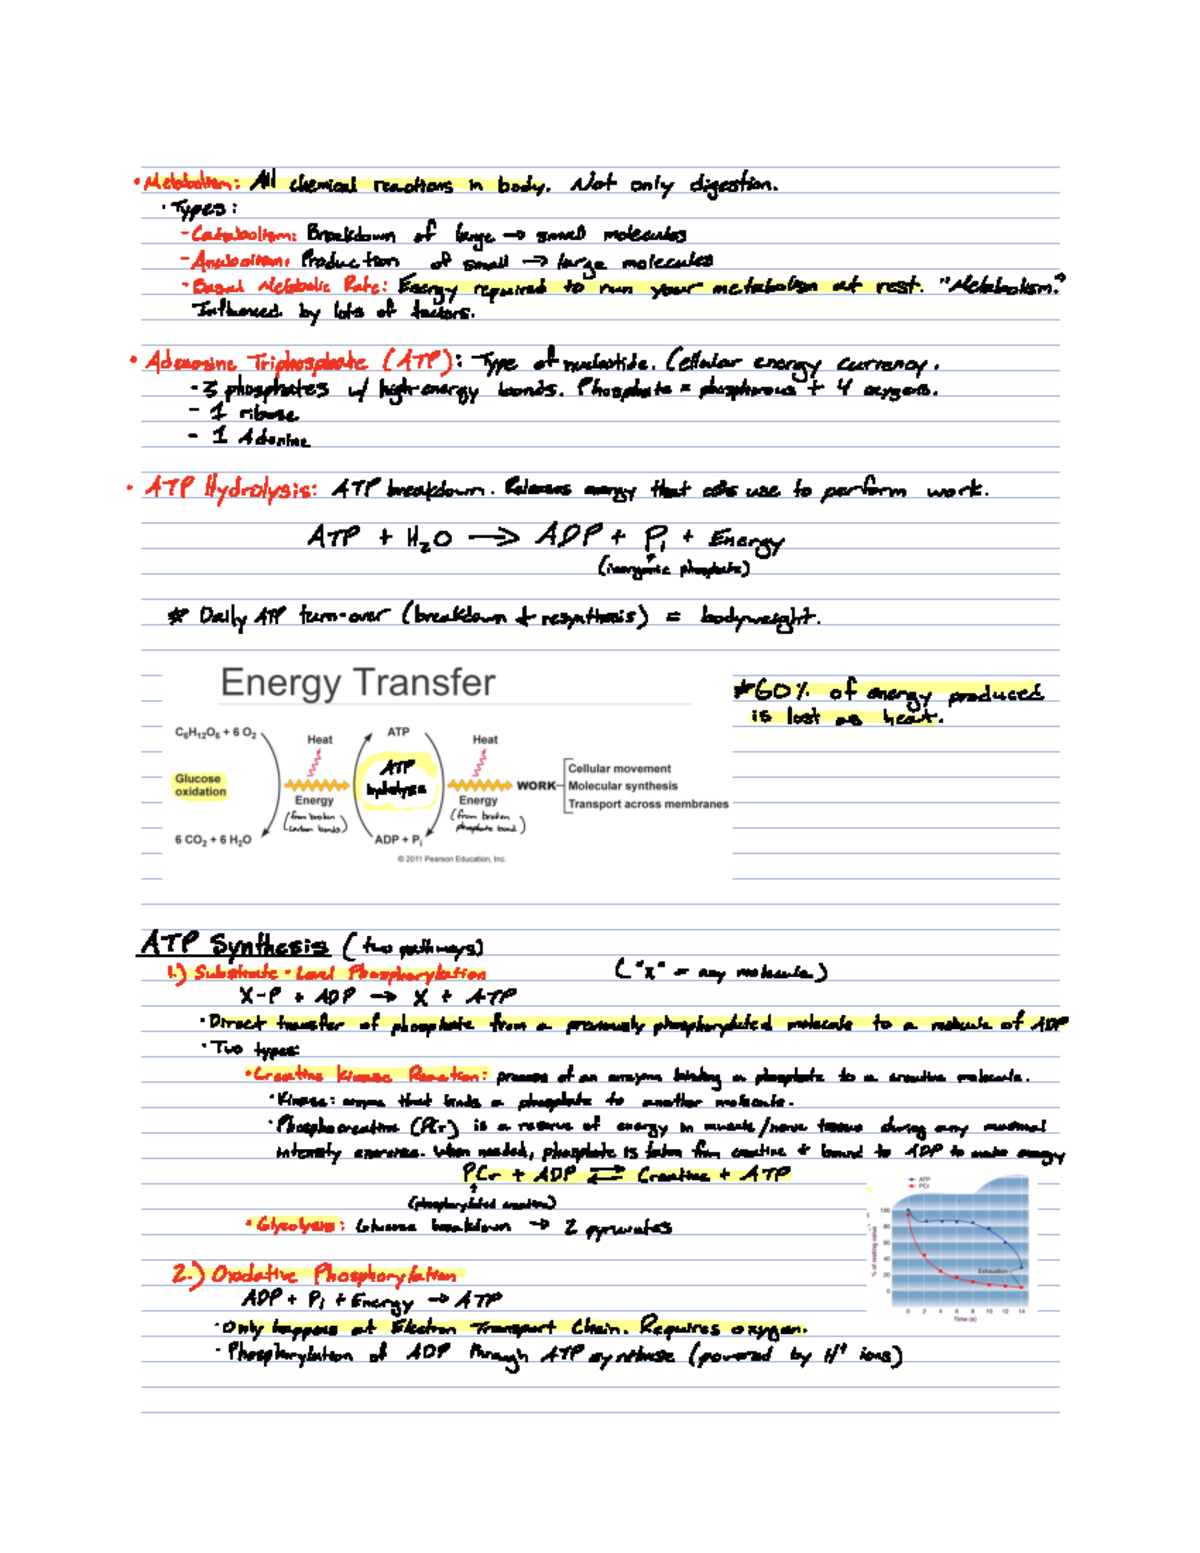 • Metabolism: All chemical reactions in body. Not only digestion.
· Types:
- Catabolism: Breakdown of large → small molecules
- Anabolism: Production of small → large molecules
- Basal Metabolic Rate: Energy required to run your metabolism at rest. "Metabolism."
Influenced by lots of factors.
• Adenosine Triphosphate (ATP): Type of nucleotide. Cellular energy currency.
- 3 phosphates w/ high-energy bonds. Phosphate = phosphorous + 4 oxygens.
- 1 ribose
- 1 Adenine
• ATP Hydrolysis: ATP breakdown. Releases energy that cells use to perform work.
ATP + H₂O → ADP + Pi + Energy
(inorganic phosphate)
* Daily ATP turn-over (breakdown + resynthesis) = bodyweight.
Energy Transfer
*60% of energy produced
is lost as heart.
C₆H₁₂O₆ + 6 O₂
Heat
ATP
Heat
Glucose
oxidation
ATP
hydrolysis
Energy
(from broken
carbon bonds)
Energy
(from broken
phosphate bond)
WORK
Cellular movement
Molecular synthesis
Transport across membranes
6 CO₂ + 6 H₂O
ADP + Pi
© 2011 Pearson Education, Inc.
ATP Synthesis (two pathways)
1.) Substrate-Level Phosphorylation ("x" = any molecule)
X-P + ADP → X + ATP
· Direct transfer of phosphate from a previously phosphorylated molecule to a molecule of ADP
· Two types:
• Creatine Kinase Reaction: process of an enzyme binding a phosphate to a creatine molecule.
· Kinase: enzyme that binds a phosphate to another molecule.
· Phosphocreatine (PCr) is a reserve of energy in muscle/nerve tissue during any maximal
intensity exercise. When needed, phosphate is taken from creatine + bound to ADP to make energy
PCr + ADP ⇄ Creatine + ATP
(phosphorylated creatine)
• Glycolysis: Glucose breakdown → 2 pyruvates
ATP
PCr
% of resting value
100
80
60
40
20
0
Exhaustion
0 2 4 6 8 10 12 14
Time (s)
2.) Oxidative Phosphorylation
ADP + Pi + Energy → ATP
· Only happens at Electron Transport Chain. Requires oxygen.
· Phosphorylation of ADP through ATP synthase (powered by H⁺ ions)